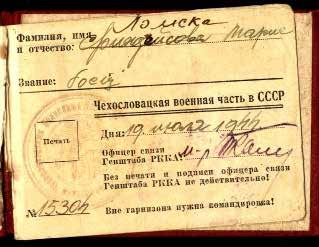 Ломска
Фамилия, имя
и отчество: Марие
Звание:
Чехословацкая военная часть в СССР
Печать
Дня: 19 июля 1944
Офицер связи
Генштаба РККА:
Без печати и подписи офицера связи
Генштаба РККА не действительно!
№ 15304
Вне гарнизона нужна командировка!